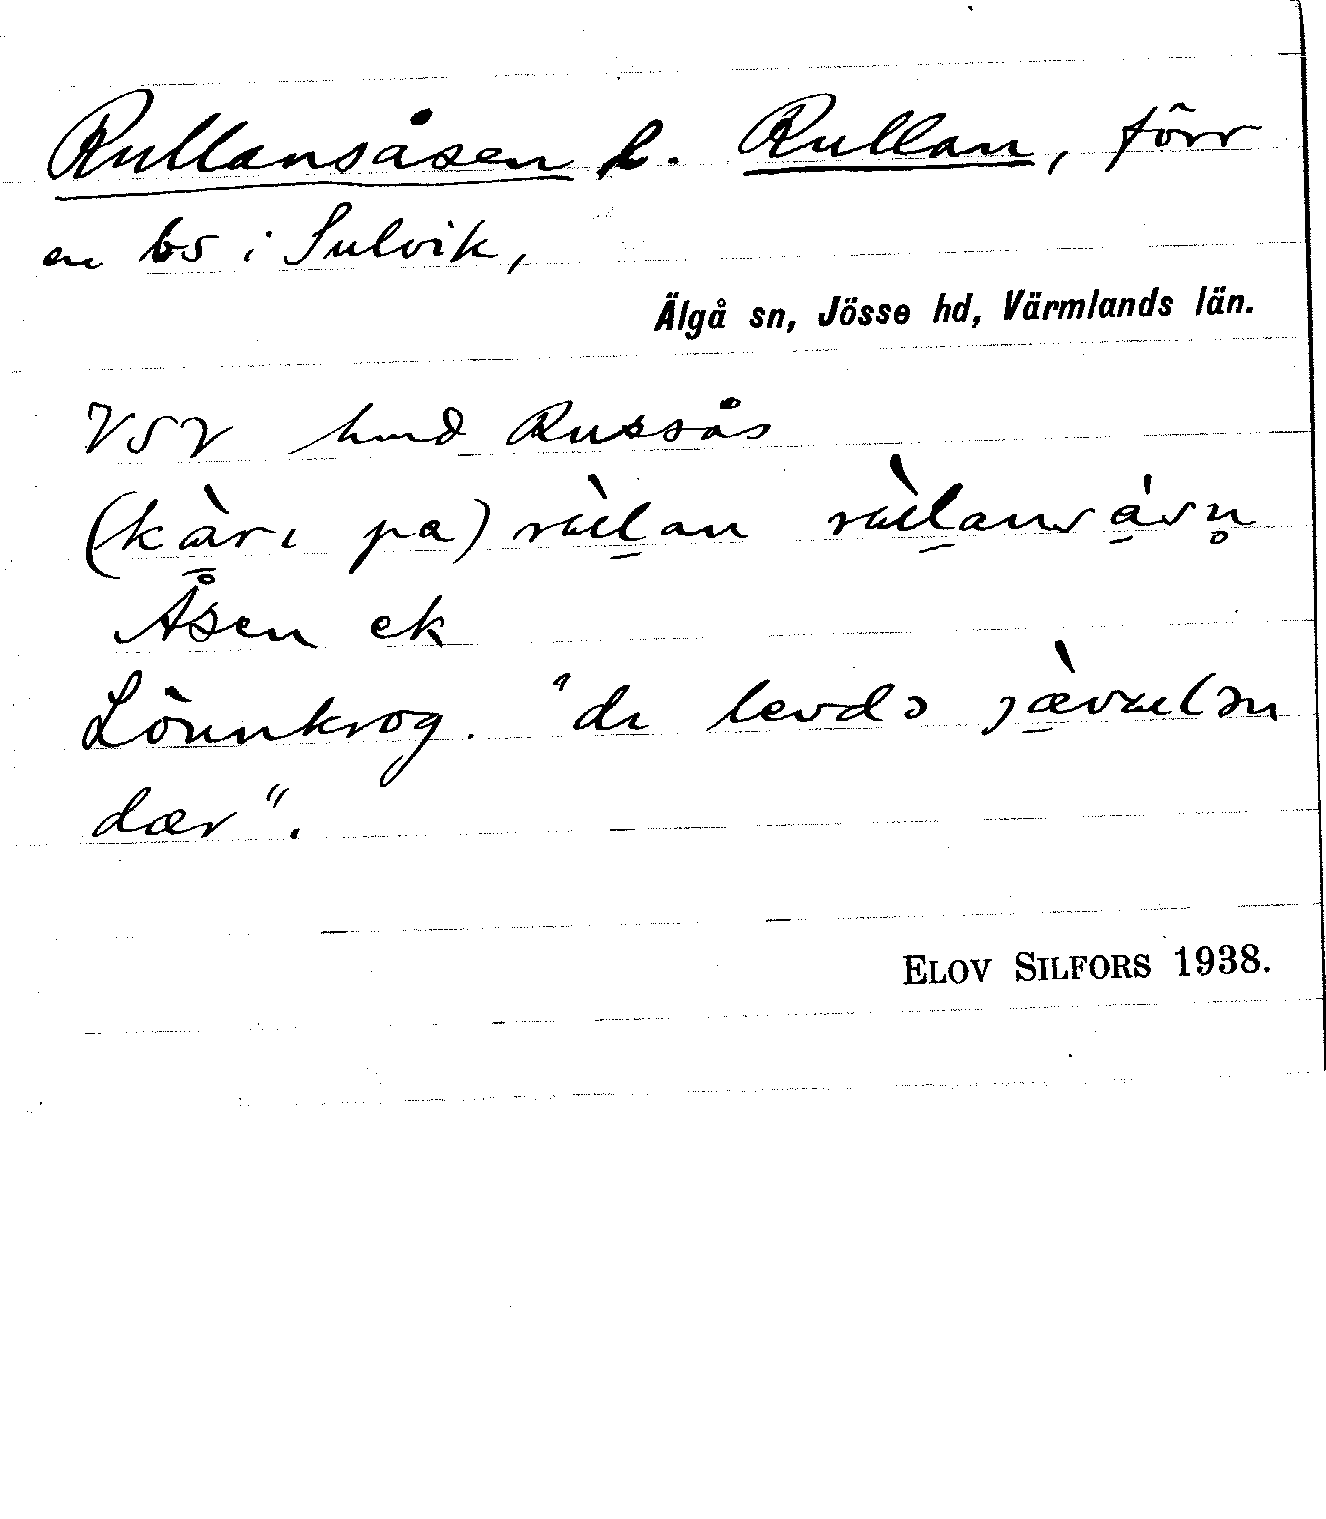 Rullansåsen l. Rullan, förr
en bs i Sulvik,
Älgå sn, Jösse hd, Värmlands län.
VSV hmd Russås
(kàrɩ pa) rùlan rùlansåsn̥
Åsen ek
Lönnkrog. "dɩ levdə jævulən
dær".
ELOV SILFORS 1938.